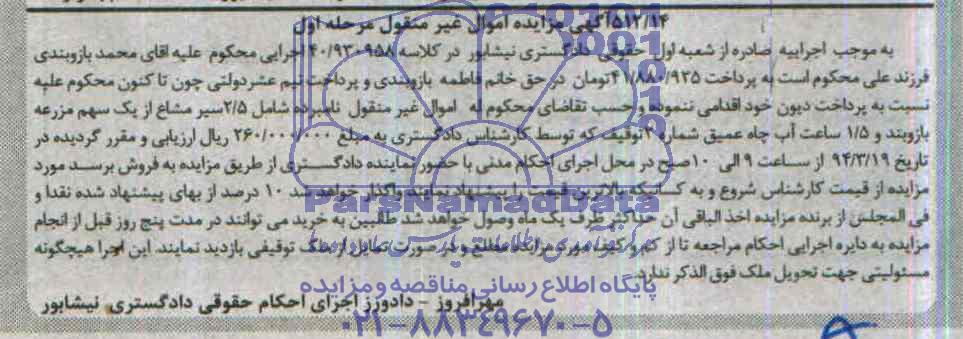 ۵۱۲/۱۴آگهی مزایده اموال غیر منقول مرحله اول
به موجب اجراییه صادره از شعبه اول حقوقی دادگستری نیشابور در کلاسه ۴۰/۹۳۰۹۵۸ اجرایی محکوم علیه اقای محمد بازوبندی
فرزند علی محکوم است به پرداخت ۴۱/۸۸۰/۹۳۵تومان در حق خانم فاطمه بازوبندی و پرداخت نیم عشردولتی چون تا کنون محکوم علیه
نسبت به پرداخت دیون خود اقدامی ننموده و حسب تقاضای محکوم له اموال غیر منقول نامبرده شامل ۲/۵سیر مشاع از یک سهم مزرعه
بازوبند و ۱/۵ ساعت آب چاه عمیق شماره ۴توقیف که توسط کارشناس دادگستری به مبلغ ۲۶۰/۰۰۰/۰۰۰ ریال ارزیابی و مقرر گردیده در
تاریخ ۹۴/۳/۱۹ از ساعت ۹ الی ۱۰صبح در محل اجرای احکام مدنی با حضور نماینده دادگستری از طریق مزایده به فروش برسد مورد
مزایده از قیمت کارشناس شروع و به کسانیکه بالاترین قیمت را پیشنهاد نمایند واگذار خواهد شد ۱۰ درصد از بهای پیشنهاد شده نقدا و
فی المجلس از برنده مزایده اخذ الباقی آن حداکثر ظرف یک ماه وصول خواهد شد طالبین به خرید می توانند در مدت پنج روز قبل از انجام
مزایده به دایره اجرایی احکام مراجعه تا از کم و کیف مورد مزایده مطلع و در صورت تمایل از ملک توقیفی بازدید نمایند. این اجرا هیچگونه
مسئولیتی جهت تحویل ملک فوق الذکر ندارد.
مهرافروز - دادورز اجرای احکام حقوقی دادگستری نیشابور
ParsNamadData
پایگاه اطلاع رسانی مناقصه و مزایده
۰۲۱-۸۸۳۴۹۶۷۰-۵